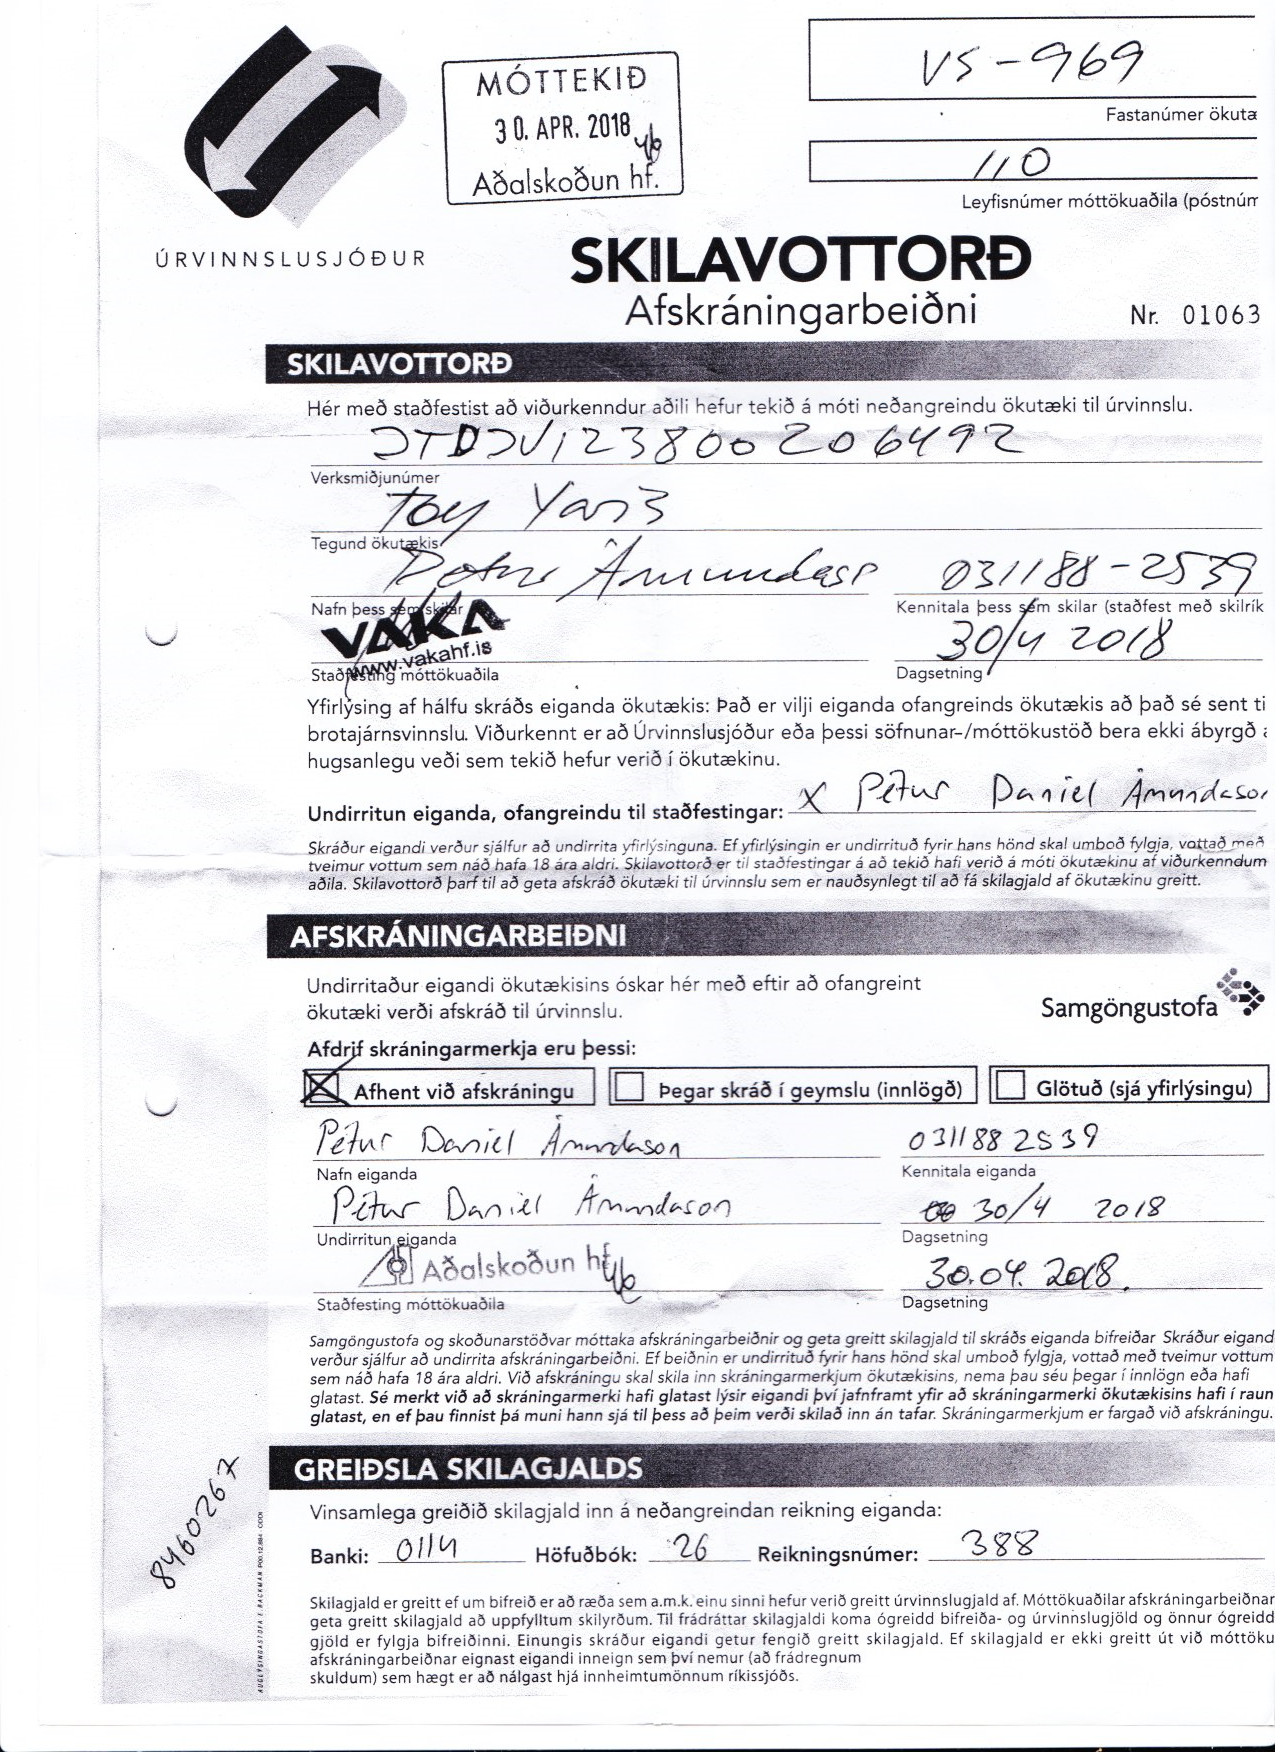 MÓTTEKIÐ
30. APR. 2018
Aðalskoðun hf.
VS-969
Fastanúmer ökutæ
110
Leyfisnúmer móttökuaðila (póstnúm
ÚRVINNSLUSJÓÐUR
SKILAVOTTORÐ
Afskráningarbeiðni
Nr. 01063
SKILAVOTTORÐ
Hér með staðfestist að viðurkenndur aðili hefur tekið á móti neðangreindu ökutæki til úrvinnslu.
JTDJV123800206492
Verksmiðjunúmer
Toy Yaris
Tegund ökutækis
Petur Ámundass 031188-2539
Nafn þess sem skilar Kennitala þess sem skilar (staðfest með skilrík
VAKA
www.vakahf.is
30/4 2018
Staðfesting móttökuaðila Dagsetning
Yfirlýsing af hálfu skráðs eiganda ökutækis: Það er vilji eiganda ofangreinds ökutækis að það sé sent ti
brotajárnsvinnslu. Viðurkennt er að Úrvinnslusjóður eða þessi söfnunar-/móttökustöð bera ekki ábyrgð á
hugsanlegu veði sem tekið hefur verið í ökutækinu.
Undirritun eiganda, ofangreindu til staðfestingar: X Pétur Daniel Ámundason
Skráður eigandi verður sjálfur að undirrita yfirlýsinguna. Ef yfirlýsingin er undirrituð fyrir hans hönd skal umboð fylgja, vottað með
tveimur vottum sem náð hafa 18 ára aldri. Skilavottorð er til staðfestingar á að tekið hafi verið á móti ökutækinu af viðurkenndum
aðila. Skilavottorð þarf til að geta afskráð ökutæki til úrvinnslu sem er nauðsynlegt til að fá skilagjald af ökutækinu greitt.
AFSKRÁNINGARBEIÐNI
Undirritaður eigandi ökutækisins óskar hér með eftir að ofangreint
ökutæki verði afskráð til úrvinnslu.
Samgöngustofa
Afdrif skráningarmerkja eru þessi:
Afhent við afskráningu Þegar skráð í geymslu (innlögð) Glötuð (sjá yfirlýsingu)
Pétur Daniel Ámundason 0311882539
Nafn eiganda Kennitala eiganda
Pétur Daniel Ámundason 30/4 2018
Undirritun eiganda Dagsetning
Aðalskoðun hf. 30.04.2018.
Staðfesting móttökuaðila Dagsetning
Samgöngustofa og skoðunarstöðvar móttaka afskráningarbeiðnir og geta greitt skilagjald til skráðs eiganda bifreiðar Skráður eigand
verður sjálfur að undirrita afskráningarbeiðni. Ef beiðnin er undirrituð fyrir hans hönd skal umboð fylgja, vottað með tveimur vottum
sem náð hafa 18 ára aldri. Við afskráningu skal skila inn skráningarmerkjum ökutækisins, nema þau séu þegar í innlögn eða hafi
glatast. Sé merkt við að skráningarmerki hafi glatast lýsir eigandi því jafnframt yfir að skráningarmerki ökutækisins hafi í raun
glatast, en ef þau finnist þá muni hann sjá til þess að þeim verði skilað inn án tafar. Skráningarmerkjum er fargað við afskráningu.
GREIÐSLA SKILAGJALDS
Vinsamlega greiðið skilagjald inn á neðangreindan reikning eiganda:
Banki: 0114 Höfuðbók: 26 Reikningsnúmer: 388
8460267
Skilagjald er greitt ef um bifreið er að ræða sem a.m.k. einu sinni hefur verið greitt úrvinnslugjald af. Móttökuaðilar afskráningarbeiðnar
geta greitt skilagjald að uppfylltum skilyrðum. Til frádráttar skilagjaldi koma ógreidd bifreiða- og úrvinnslugjöld og önnur ógreidd
gjöld er fylgja bifreiðinni. Einungis skráður eigandi getur fengið greitt skilagjald. Ef skilagjald er ekki greitt út við móttöku
afskráningarbeiðnar eignast eigandi inneign sem því nemur (að frádregnum
skuldum) sem hægt er að nálgast hjá innheimtumönnum ríkissjóðs.